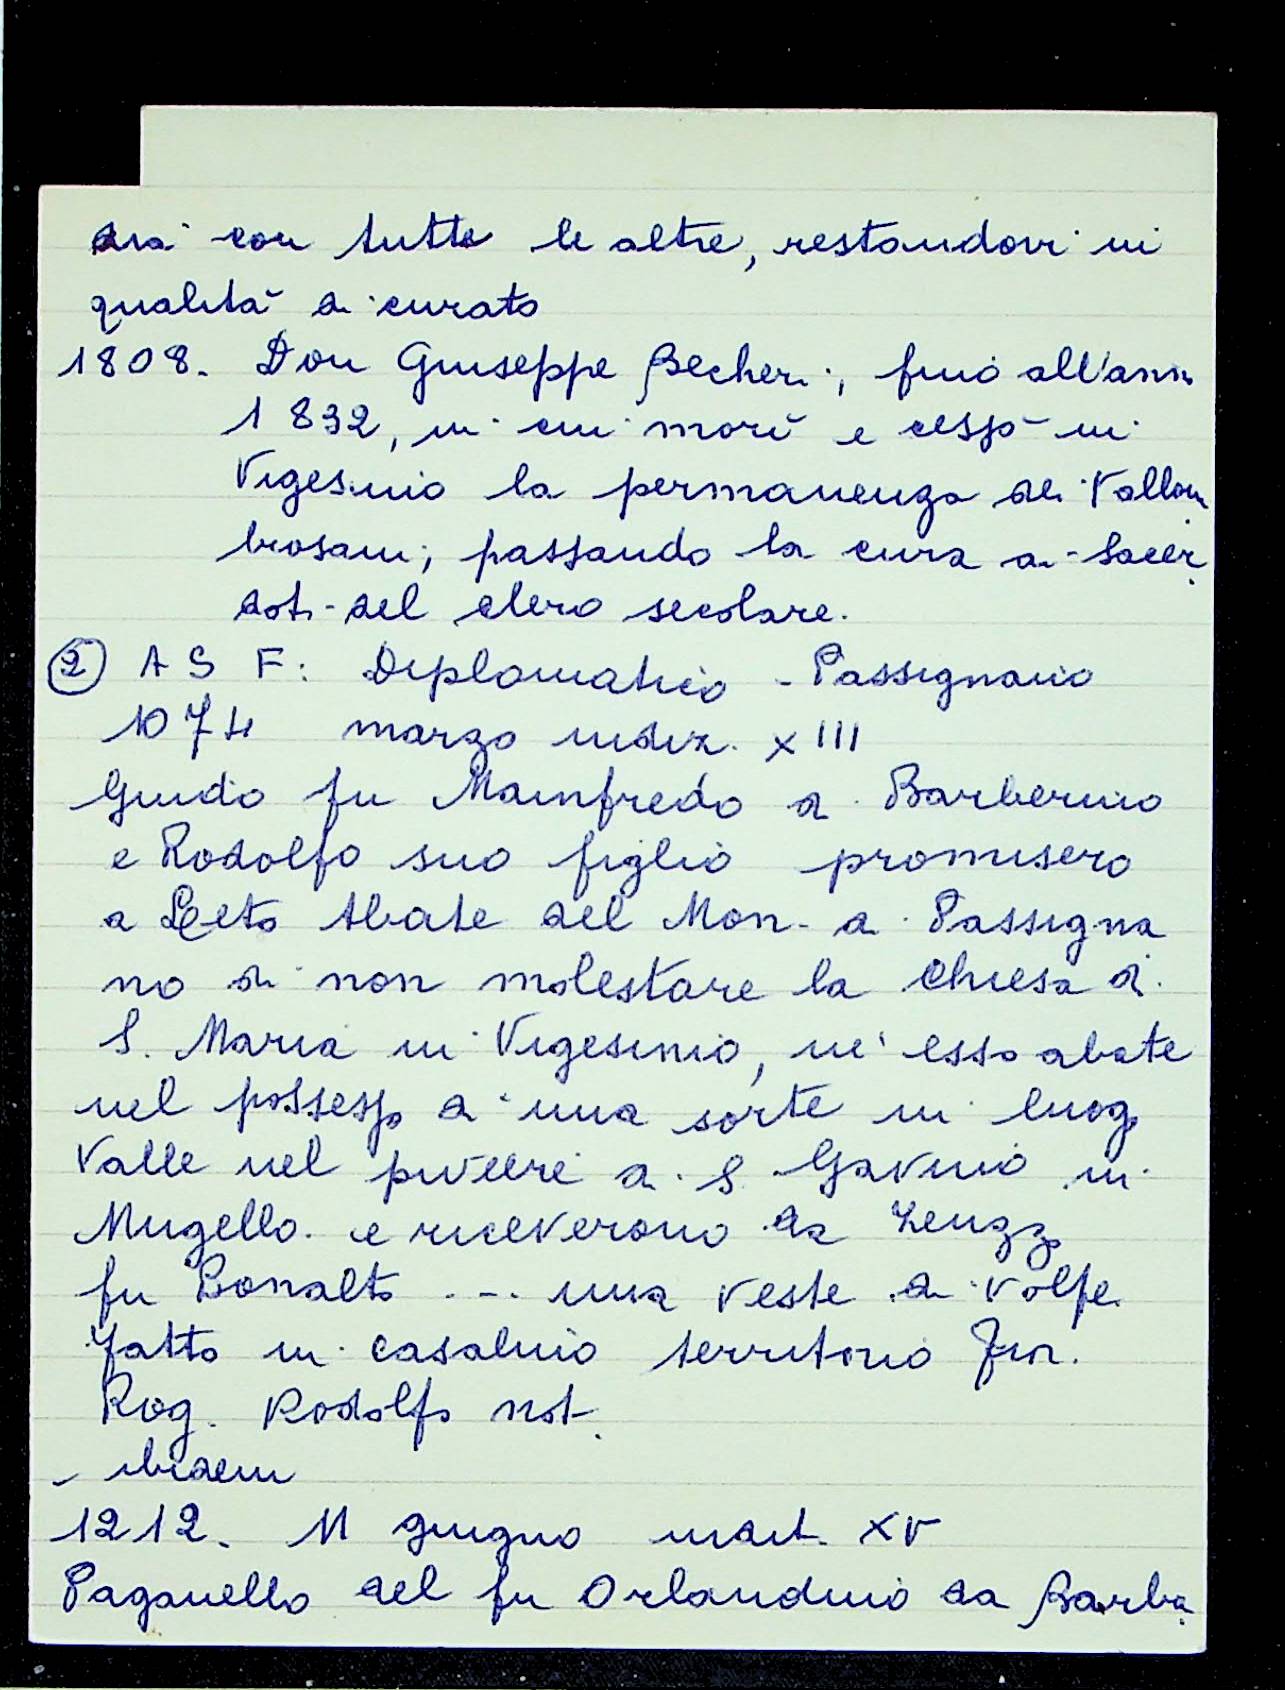 zia con tutte le altre, restandovi in
qualità di curato
1808. Don Giuseppe Becheri, fino all'anno
1832, in cui morì e cessò in
Vigesimo la permanenza dei Vallom
brosani; passando la cura ai Sacer
doti del clero secolare.
② A S F: Diplomatico - Passignano
1074 marzo indiz. XIII
Guido fu Mainfredo di Barberino
e Rodolfo suo figlio promisero
a Leto Abate del Mon. di Passigna
no di non molestare la Chiesa di
S. Maria in Vigesimo, nè esso abate
nel possesso di una sorte in luog
Valle nel piviere di S. Gavino in
Mugello. e riceverono da Zenzo
fu Bonalto ... una veste di volpe.
fatto in Casalino territorio Fior.
Rog. Rodolfo not.
- ibidem
1212. 11 giugno indit. XV
Paganello del fu Orlandino da Barbe